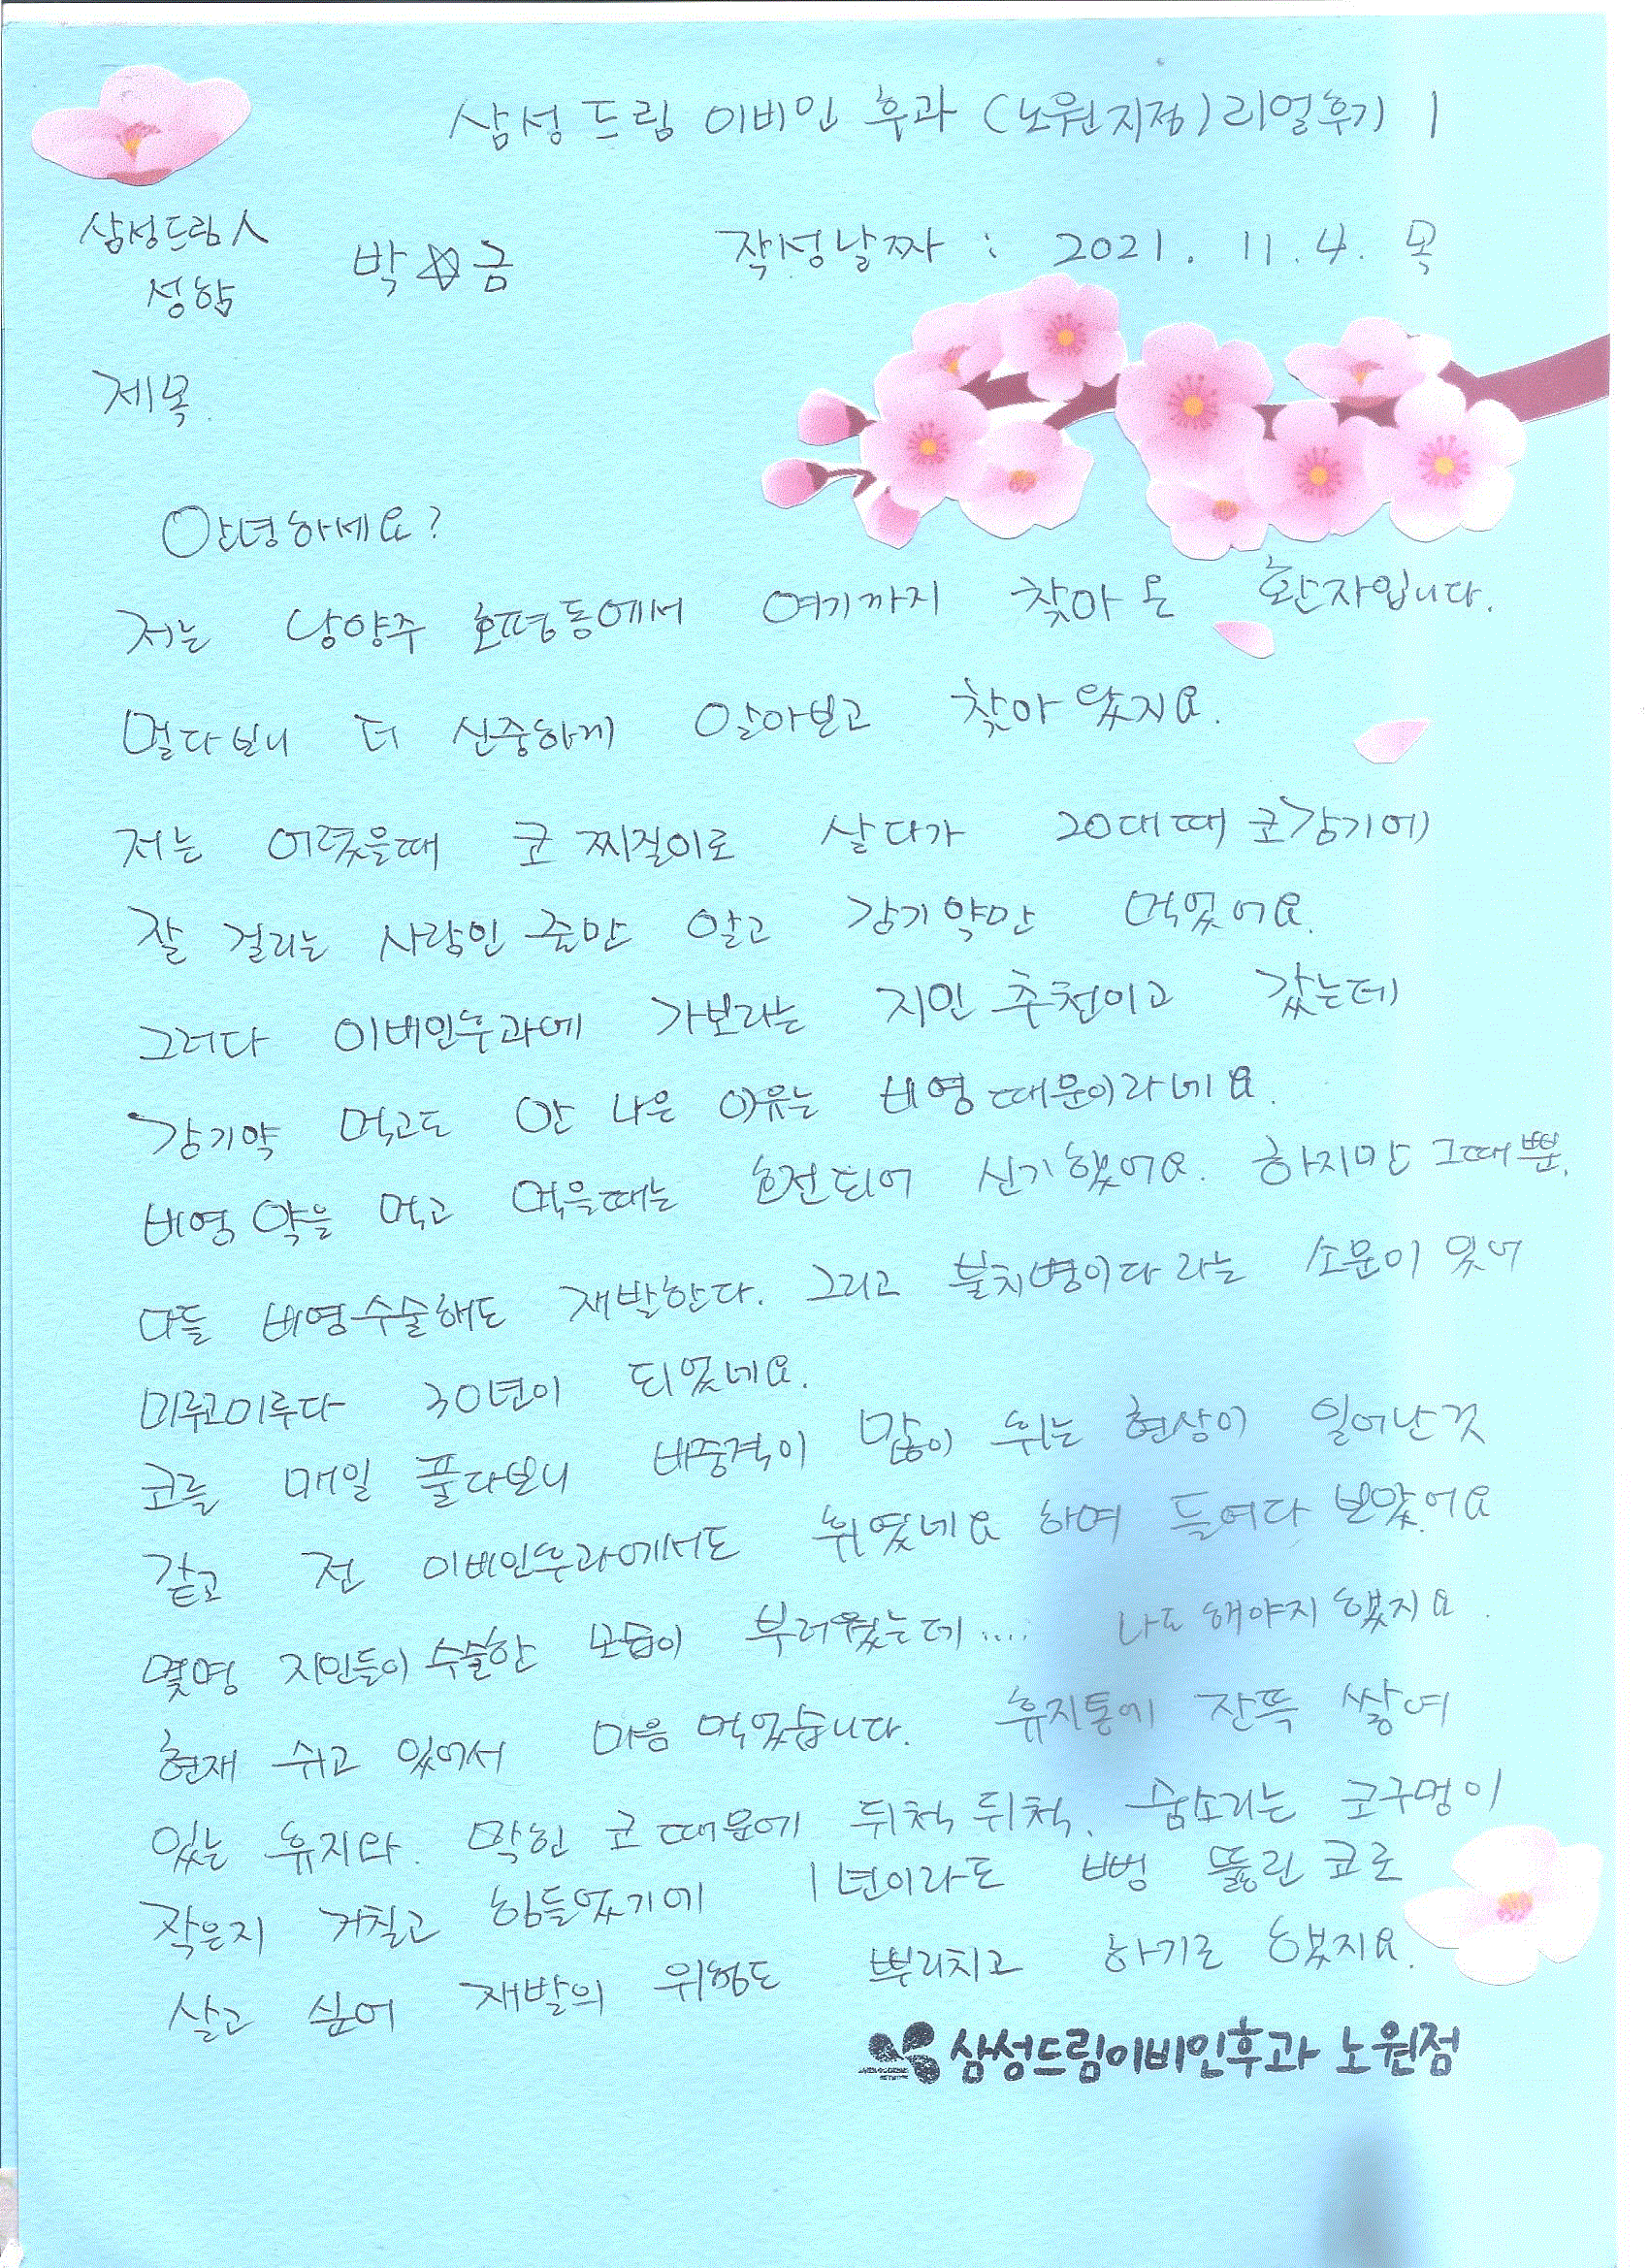 삼성드림 이비인 후과 (노원지점) 리얼후기 1
삼성드림人 성함 박☆금 작성날짜 : 2021. 11. 4. 목
제목.
안녕하세요?
저는 남양주 호평동에서 여기까지 찾아 온 환자입니다.
멀다보니 더 신중하게 알아보고 찾아 왔지요.
저는 어렸을때 코 찌질이로 살다가 20대때 코감기에
잘 걸리는 사람인 줄만 알고 감기약만 먹었어요.
그러다 이비인후과에 가보라는 지인 추천이고 갔는데
감기약 먹고도 안 나은 이유는 비염때문이라네요.
비염약을 먹고 먹을때는 호전되어 신기했어요. 하지만 그때뿐.
다들 비염수술해도 재발한다. 그리고 불치병이다라는 소문이 잇어
미루고미루다 30년이 되었네요.
코를 매일 풀다보니 비중격이 많이 휘는 현상이 일어난것
같고 전 이비인후과에서도 휘였네요 하며 들여다 보았어요
몇명 지인들이 수술한 모습이 부러웠는데.... 나도해야지 했지요.
현재 쉬고 있어서 마음 먹었습니다. 휴지통에 잔뜩 쌓여
있는 휴지와. 막힌 코 때문에 뒤척뒤척. 숨소리는 코구멍이
작은지 거칠고 힘들었기에 1년이라도 뻥 뚫린 코로
살고 싶어 재발의 위험도 뿌리치고 하기로 했지요.
삼성드림이비인후과 노원점